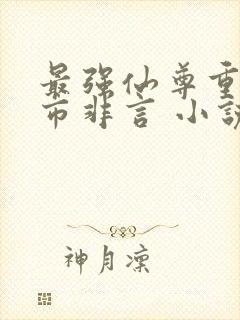 最强仙尊重
市非言 小说
神月凛